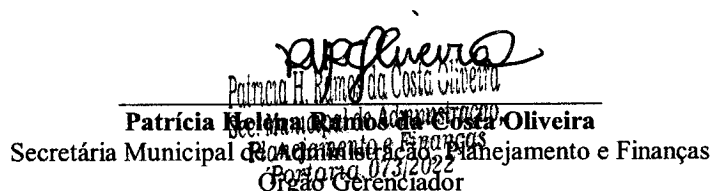 Patricia H. Ramos da Costa Oliveira
Sec. Municipal de Administração,
Planejamento e Finanças
Portaria 073/2022
Patrícia Helena Ramos da Costa Oliveira
Secretária Municipal de Administração, Planejamento e Finanças
Órgão Gerenciador